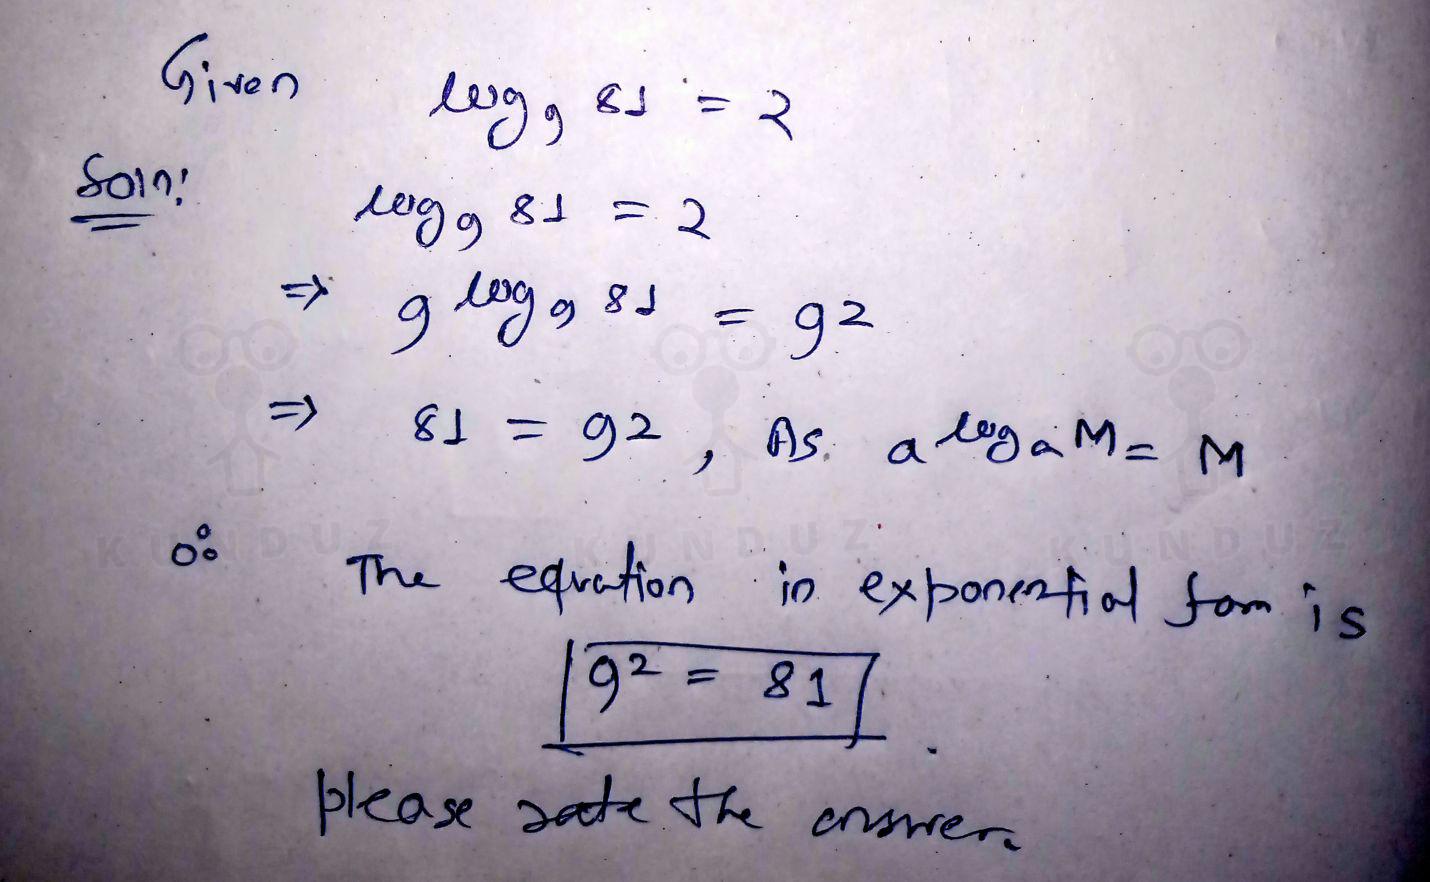 Given log₉ 81 = 2
Soln: log₉ 81 = 2
⇒ 9^log₉ 81 = 9²
⇒ 81 = 9², As. a^logₐ M = M
∴ The equation in exponential form is
9² = 81
please rate the answer.
KUNDUZ KUNDUZ KUNDUZ